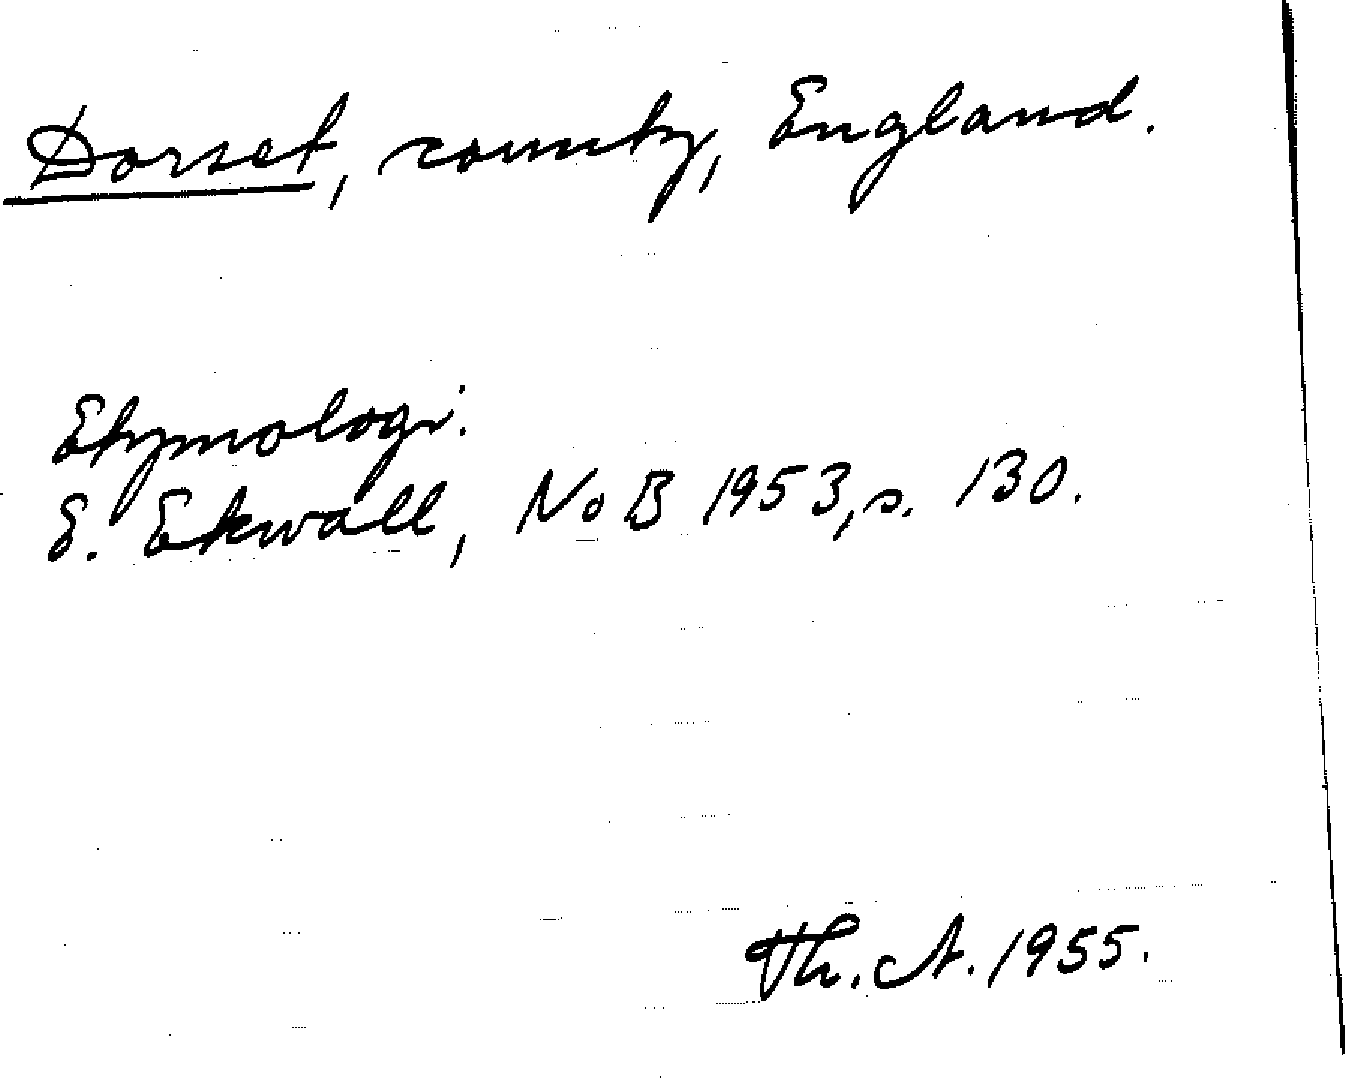 Dorset, county, England.
Etymologi:
E. Ekwall, NoB 1953, s. 130.
Th. A. 1955.